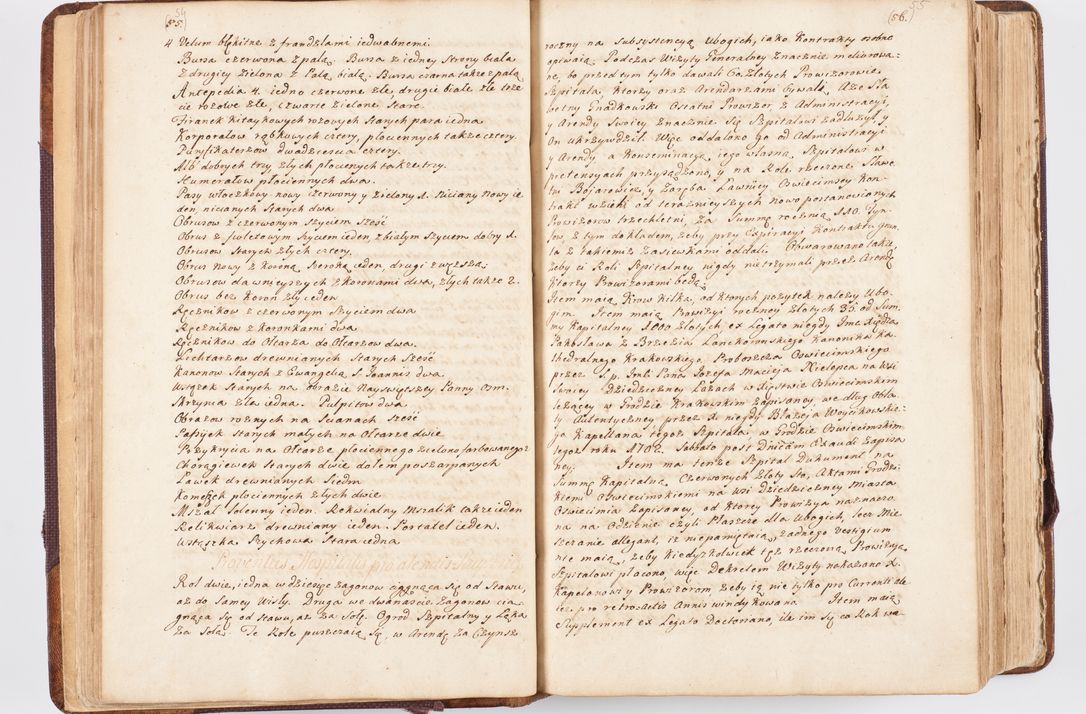 54
(55.)
4 Velum błękitne z frandzlami iedwabnemi.
Bursa czerwona z palą. Bursa z iedney strony biała
z drugiey zielona z Palą białą. Bursa czarna także z palą
Antepedia 4. iedno czerwone złe, drugie białe złe trze
cie rożowe złe, czwarte zielone stare.
Firanek kitaykowych rożowych starych para iedna
Korporałow rąbkowych cztery, płociennych także cztery.
Puryfikaterzow dwadziescia cztery.
Alb dobrych trzy złych płociennych także trzy.
Humerałow płociennych dwa.
Pasy włoczkowy nowy czerwony y zielony 1. niciany nowy ie
den, nicianych starych dwa
Obrusow z czerwonym szyciem sześć
Obrus z fioletowym szyciem ieden, z białym szyciem dobry 1.
Obrusow starych złych cztery.
Obrus nowy z koroną szeroką ieden, drugi z węższą
Obrusow dawnieyszych z koronami dwa, złych także 2.
Obrus bez koron zły ieden
Ręcznikow z czerwonym szyciem dwa
Ręcznikow z koronkami dwa
Ręcznikow do Ołtarza do Ołtarzow dwa
Lichtarzow drewnianych starych sześć
Kanonow starych z Ewangelią S. Joannis dwa
Wstążek starych na obrazie Nayświętszey Panny osm.
Skrzynia zła iedna. Pulpitow dwa
Obrazow rożnych na ścianach sześć
Pasyjek starych małych na Ołtarze dwie
Pozykrycia na Ołtarze płociennego zielono farbowanego 2
Chorągiewek starych dwie dołem poszarpanych
Ławek drewnianych siedm
Komeżek płociennych złych dwie
Mszał solenny ieden. Rekwialny Mszalik także ieden
Relikwiarz drewniany ieden. Portatel ieden.
Wstążka Rychowa stara iedna
Proventus Hospitalis pro alendis Pauperibus
Rol dwie, iedna w dziesięć zagonow ciągnąca się od stawu,
aż do samey Wisły. Druga we dwanaście zagonow cią
gnąca się od stawu, aż za Sołę. Ogrod Szpitalny y Łąka
za Sołą. Te Role puszczaią się, w Arendę za Czynsz
55
(56.)
roczny na subsystencyą Ubogich, iako Kontrakty osobne
opiewaią. Podczas Wizyty Generalney znacznie meliorowa:
ne, bo przed tym tylko dawali 60. Złotych Prowizorowie
Szpitala, ktorzy oraz Arendarzami bywali. A że Sła
wetny Gnadkowski ostatni Prowizor z Administracyi,
y Arendy swoiey znacznie się Szpitalowi zadłużył y
On ukrzywdził. Więc oddalono go od Administracyi
y Arendy a Konseminacyą iego własną Szpitalowi w
pretensyach przysądzono, y na Role rzeczone Sławe
tni Bojarowicz, y Zaręba Ławnicy Oświęcimscy Kon:
trakt wzieli od teraznieyszych nowo postanowionych
Prowizorow trzechletni za summę roczną 110. Tyn
fow, z tym dokładem, żeby przy Expiracyi Kontraktu grun
ta z takiemiż zasiewkami oddali. Obwarowano także,
żeby ci Roli Szpitalney nigdy nie trzymali przez Arendę
ktorzy Prowizorami będą.
Item maią Krow kilka, od ktorych pożytek należy Ubo:
gim. Item maią Prowizyi roczney Złotych 35. od sum:
my Kapitalney 1000 Złotych, ex Legato niegdy Jmć Xiędza
Pakosława z Brzezia Lanckoronskiego Kanonika Ka:
thedralnego Krakowskiego, Proboszcza Oswiecimskiego
przez ś. p. Jmć Pana Jozefa Macieja Xielepca na wsi
swoiey Dziedziczney Łazach w Xięstwie Oswiecimskim
leżącey w Grodzie Krakowskim zapisaney, według obla:
ty Autentyczney przez X. niegdy Błażeja Woycikowskie:
go Kapellana tegoż Szpitala w Grodzie Oswiecimskim
tegoż roku 1702. Sabbato post Dnicam Exaudi zapisa
ney: Item ma tenże Szpital Dokument na
summę Kapitalną Czerwonych Złoty sto, Aktami Grodz:
kiemi Oswiecimskiemi na wsi Dziedziczney Miasta
Oswiecimia zapisaney, od ktorey Prowizya naznaczo
na na Odzienie czyli Płaszcze dla Ubogich, lecz Mie
szczanie allegant, iż niepamiętaią, żadnego vestigium
nie maią, żeby kiedyżkolwiek tęż rzeczoną Prowizyą
Szpitalowi płacono, więc Dekretem Wizyty nakazano X.
Kapelanowi y Prowizorom, żeby ią nie tylko pro Currenti ale
też pro retroactis Annis windykowana Item maią
Supplement ex Legato Doctoriano, ile im się co Rok wa